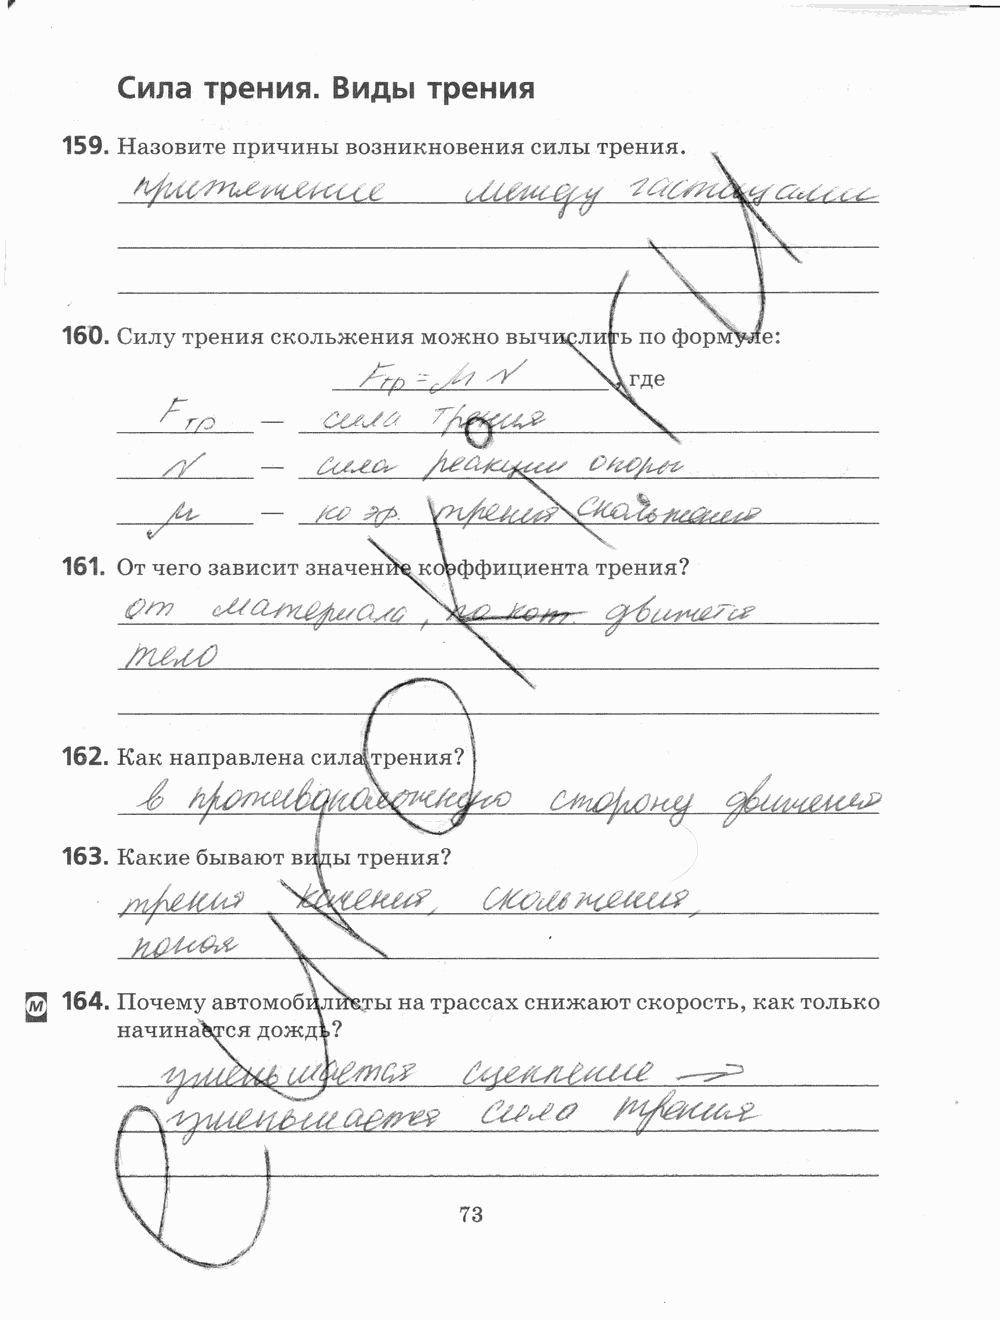 Сила трения. Виды трения
159. Назовите причины возникновения силы трения.
притяжение между частицами
160. Силу трения скольжения можно вычислить по формуле:
Fтр = μ N , где
Fтр — сила трения
N — сила реакции опоры
μ — коэф. трения скольжения
161. От чего зависит значение коэффициента трения?
от материала, по кот. движется
тело
162. Как направлена сила трения?
в противоположную сторону движения
163. Какие бывают виды трения?
трения качения, скольжения,
покоя
М 164. Почему автомобилисты на трассах снижают скорость, как только
начинается дождь?
уменьшается сцепление →
уменьшается сила трения
73